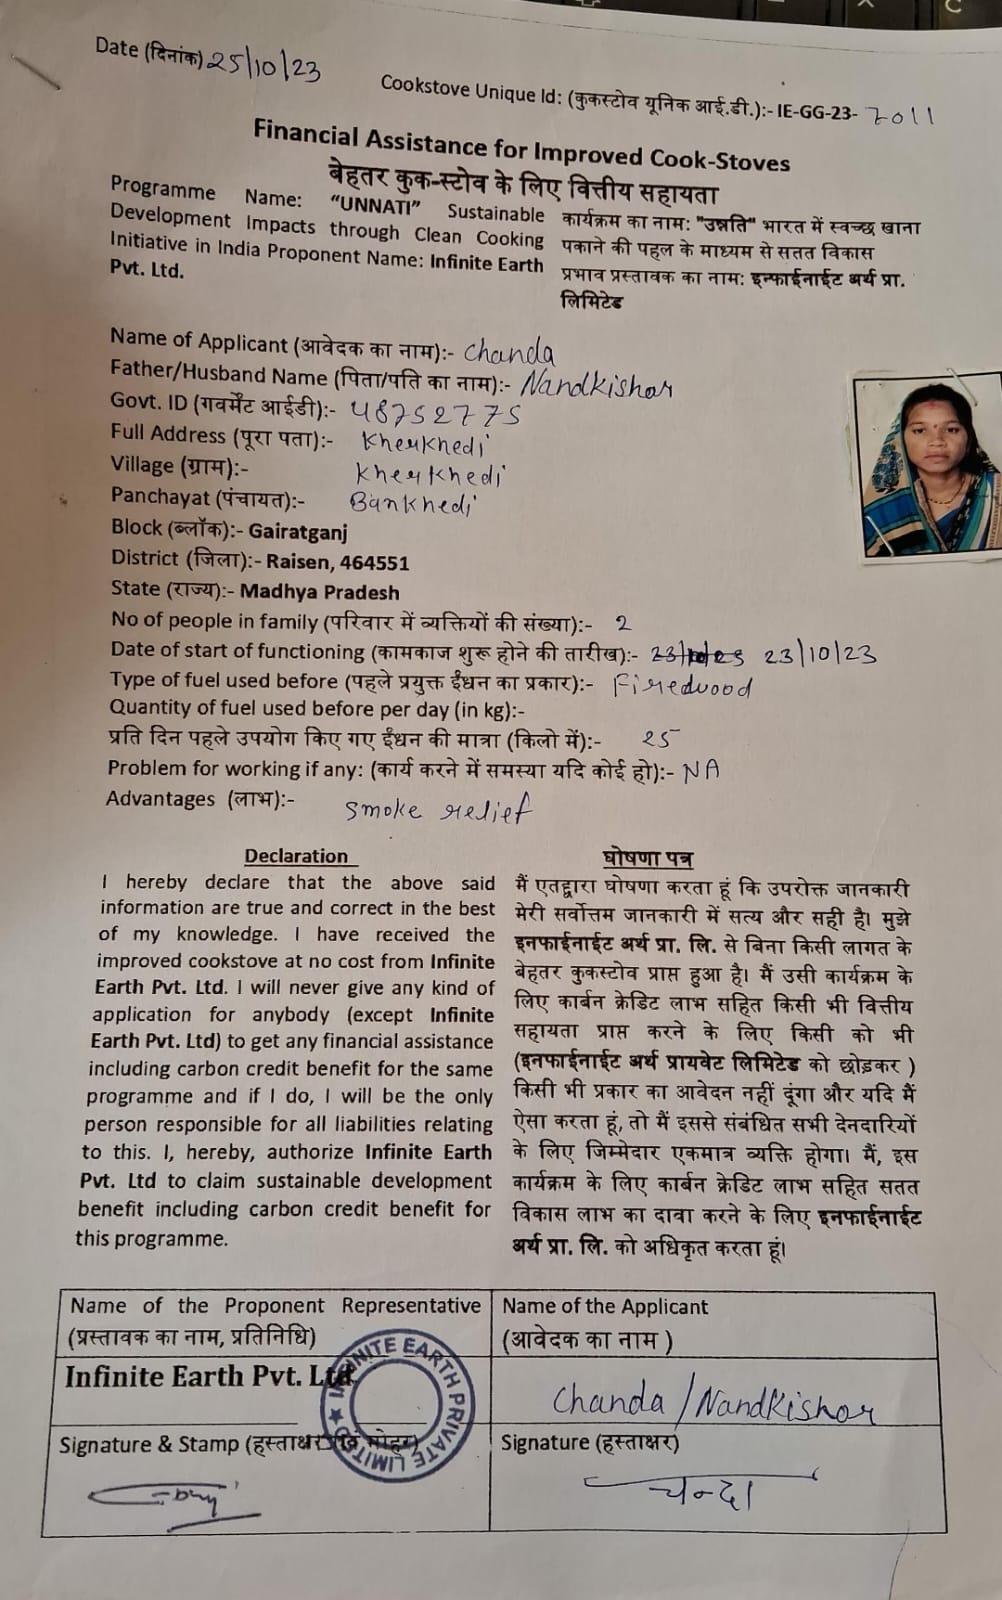 Date (दिनांक) 25/10/23
Cookstove Unique Id: (कुकस्टोव यूनिक आई.डी.):- IE-GG-23- 7011
Financial Assistance for Improved Cook-Stoves
बेहतर कुक-स्टोव के लिए वित्तीय सहायता
Programme Name: “UNNATI” Sustainable
Development Impacts through Clean Cooking
Initiative in India Proponent Name: Infinite Earth
Pvt. Ltd.
कार्यक्रम का नाम: "उन्नति" भारत में स्वच्छ खाना
पकाने की पहल के माध्यम से सतत विकास
प्रभाव प्रस्तावक का नाम: इन्फाईनाईट अर्थ प्रा.
लिमिटेड
Name of Applicant (आवेदक का नाम):- Chanda
Father/Husband Name (पिता/पति का नाम):- Nandkishor
Govt. ID (गवर्मेंट आईडी):- 48752775
Full Address (पूरा पता):- Kherkhedi
Village (ग्राम):- Kherkhedi
Panchayat (पंचायत):- Bankhedi
Block (ब्लॉक):- Gairatganj
District (जिला):- Raisen, 464551
State (राज्य):- Madhya Pradesh
No of people in family (परिवार में व्यक्तियों की संख्या):- 2
Date of start of functioning (कामकाज शुरू होने की तारीख):- 23/10/23
Type of fuel used before (पहले प्रयुक्त ईंधन का प्रकार):- Firedwood
Quantity of fuel used before per day (in kg):-
प्रति दिन पहले उपयोग किए गए ईंधन की मात्रा (किलो में):- 25
Problem for working if any: (कार्य करने में समस्या यदि कोई हो):- NA
Advantages (लाभ):- smoke relief
Declaration
I hereby declare that the above said
information are true and correct in the best
of my knowledge. I have received the
improved cookstove at no cost from Infinite
Earth Pvt. Ltd. I will never give any kind of
application for anybody (except Infinite
Earth Pvt. Ltd) to get any financial assistance
including carbon credit benefit for the same
programme and if I do, I will be the only
person responsible for all liabilities relating
to this. I, hereby, authorize Infinite Earth
Pvt. Ltd to claim sustainable development
benefit including carbon credit benefit for
this programme.
घोषणा पत्र
मैं एतद्द्वारा घोषणा करता हूं कि उपरोक्त जानकारी
मेरी सर्वोत्तम जानकारी में सत्य और सही है। मुझे
इनफाईनाईट अर्थ प्रा. लि. से बिना किसी लागत के
बेहतर कुकस्टोव प्राप्त हुआ है। मैं उसी कार्यक्रम के
लिए कार्बन क्रेडिट लाभ सहित किसी भी वित्तीय
सहायता प्राप्त करने के लिए किसी को भी
(इनफाईनाईट अर्थ प्रायवेट लिमिटेड को छोड़कर )
किसी भी प्रकार का आवेदन नहीं दूंगा और यदि मैं
ऐसा करता हूं, तो मैं इससे संबंधित सभी देनदारियों
के लिए जिम्मेदार एकमात्र व्यक्ति होगा। मैं, इस
कार्यक्रम के लिए कार्बन क्रेडिट लाभ सहित सतत
विकास लाभ का दावा करने के लिए इनफाईनाईट
अर्थ प्रा. लि. को अधिकृत करता हूं।
Name of the Proponent Representative
(प्रस्तावक का नाम, प्रतिनिधि)
Name of the Applicant
(आवेदक का नाम )
Infinite Earth Pvt. Ltd.
INFINITE EARTH PRIVATE LIMITED ★
Chanda / Nandkishor
Signature & Stamp (हस्ताक्षर एवं मोहर)
Signature (हस्ताक्षर)
चन्दा